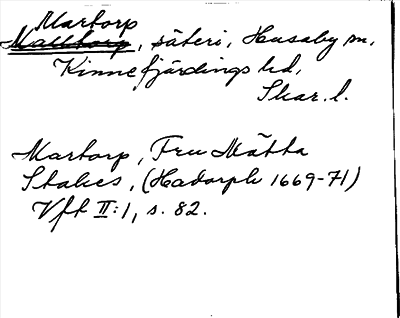 Martorp
Malltorp, säteri, Husaby sn,
Kinnefjärdings hd,
Skar. l.
Martorp, Fru Mätta
Stakes, (Hadorph 1669-71)
Vft II:1, s. 82.